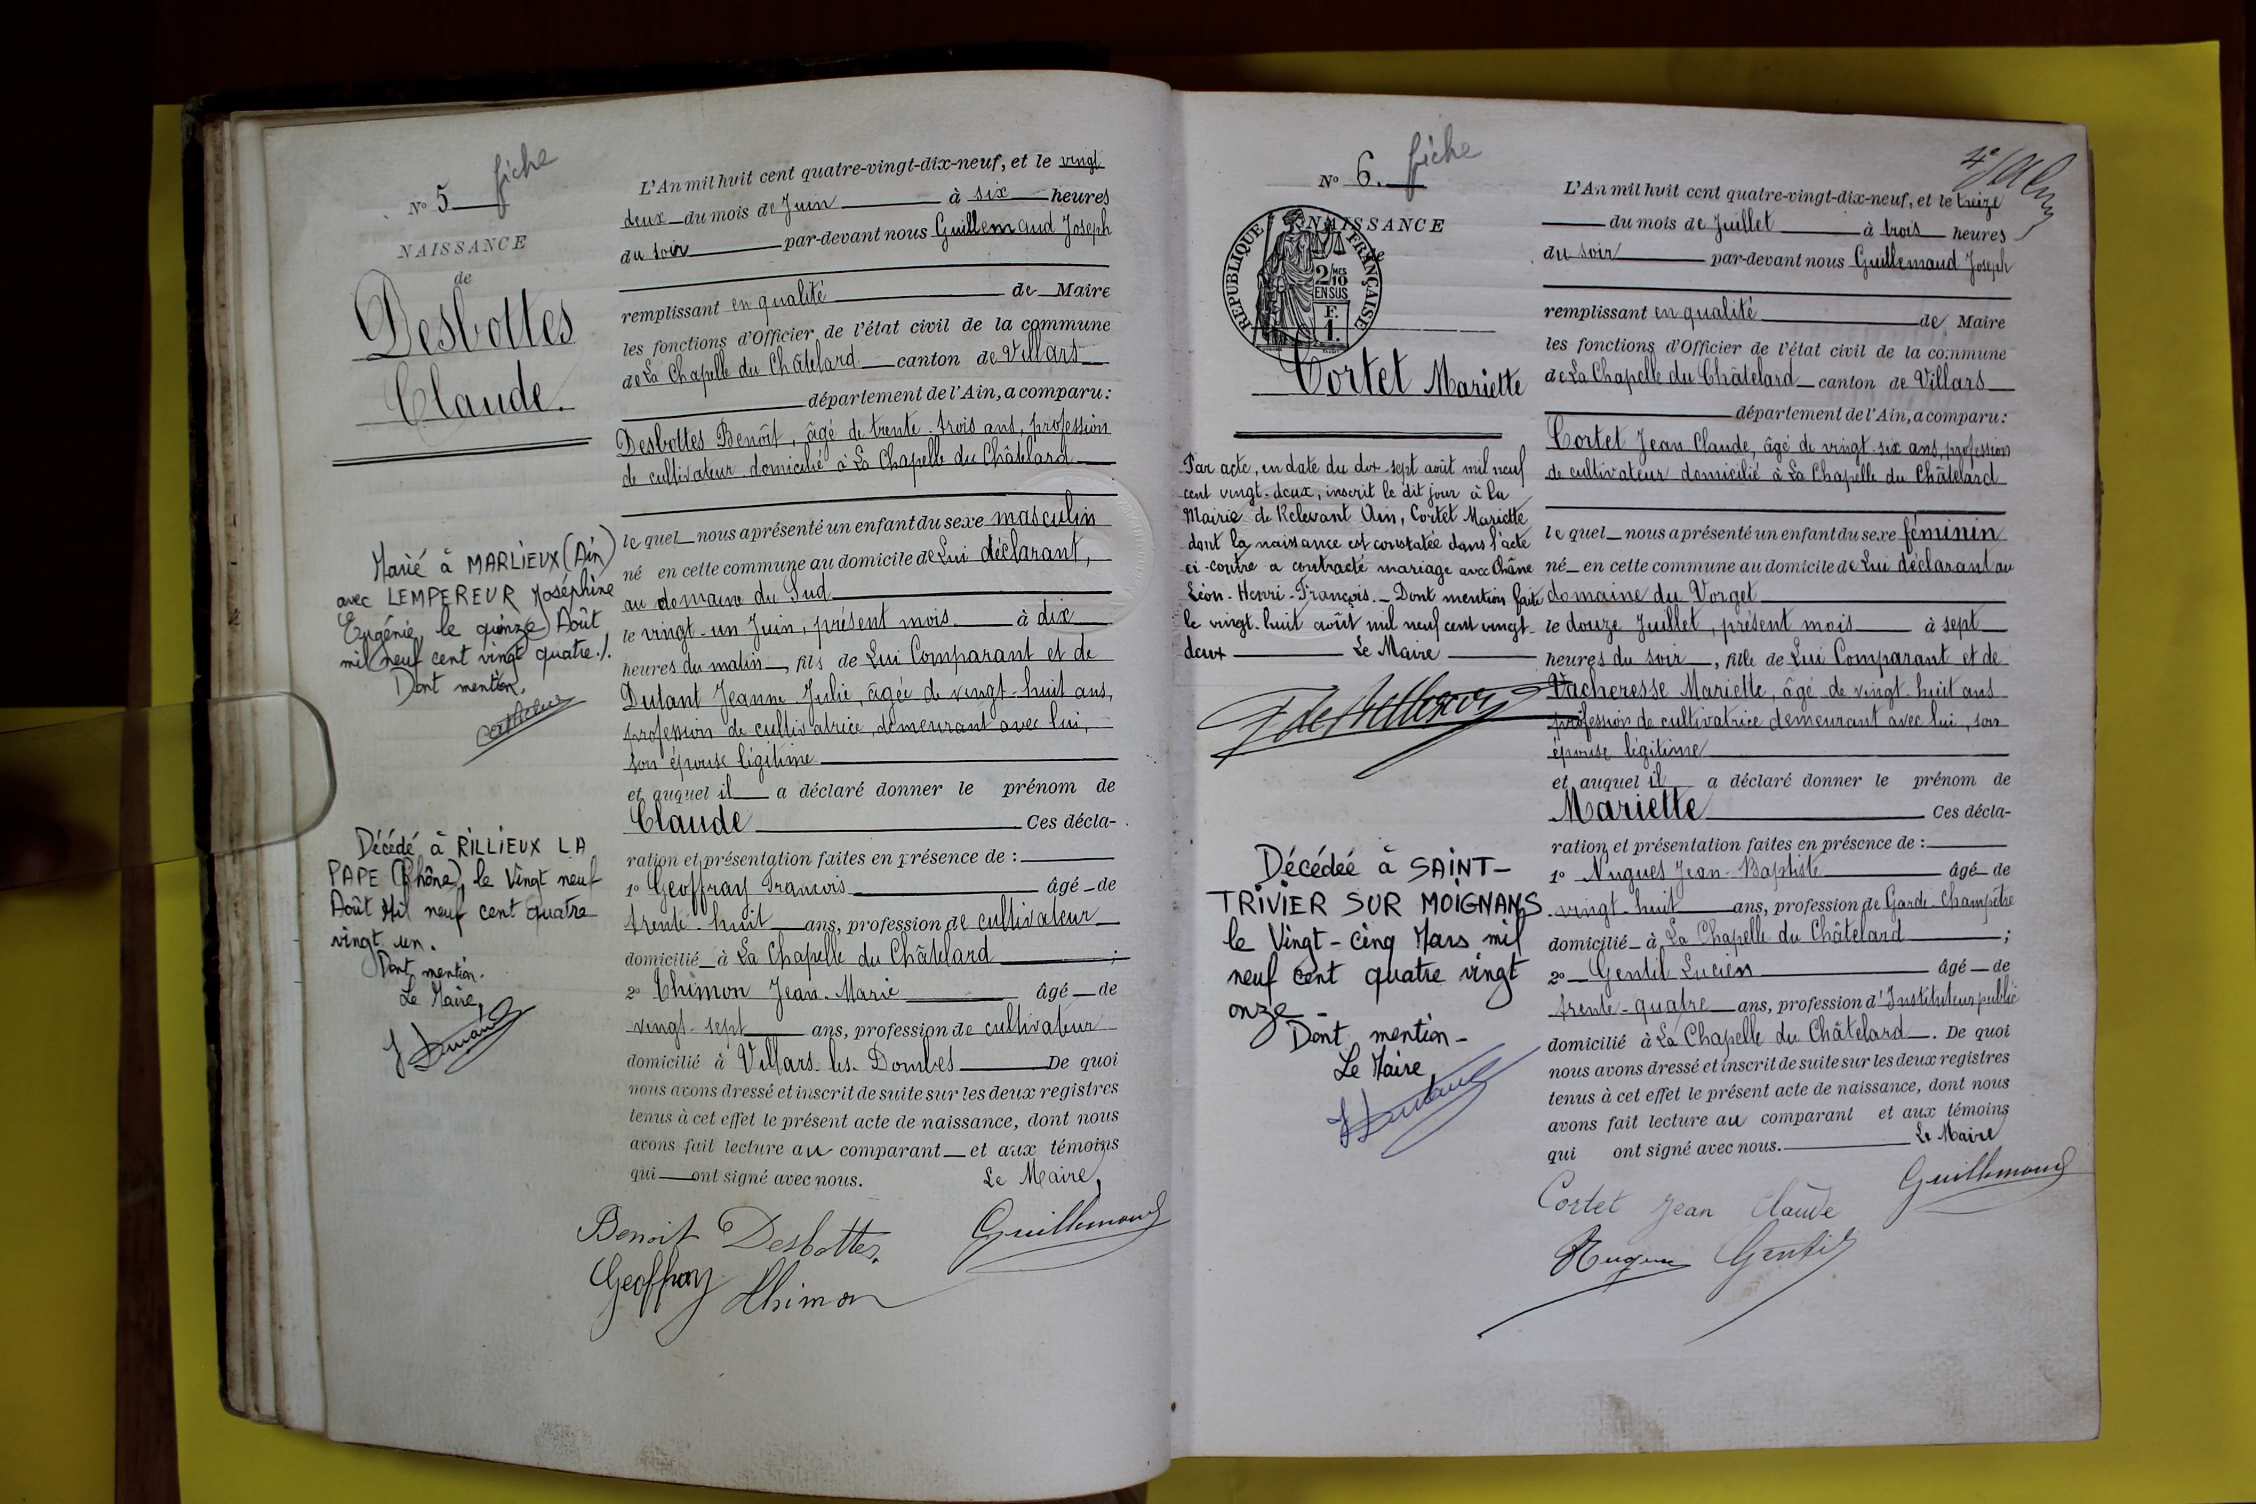 N° 5 fiche
NAISSANCE
de
Desbottes
Claude.
Marié à MARLIEUX (Ain)
avec LEMPEREUR Joséphine
Eugénie, le quinze Août
mil neuf cent vingt quatre ./.
Dont mention.
Décédé à RILLIEUX LA
PAPE (Rhône), le Vingt neuf
Août Mil neuf cent quatre
vingt un.
Dont mention.
Le Maire,
L'An mil huit cent quatre-vingt-dix-neuf, et le vingt
deux du mois de Juin à six heures
du soir par-devant nous Guillemaud Joseph
remplissant en qualité de Maire
les fonctions d'Officier de l'état civil de la commune
de La Chapelle du Châtelard canton de Villars
département de l'Ain, a comparu :
Desbottes Benoît, âgé de trente-trois ans, profession
de cultivateur domicilié à La Chapelle du Châtelard
le quel nous a présenté un enfant du sexe masculin
né en cette commune au domicile de Lui déclarant,
au domaine du Sud
le vingt-un Juin, présent mois à dix
heures du matin, fils de Lui Comparant et de
Dutant Jeanne Julie, âgée de vingt-huit ans,
profession de cultivatrice, demeurant avec lui,
son épouse légitime
et auquel il a déclaré donner le prénom de
Claude Ces décla-
ration et présentation faites en présence de :
1° Geoffray Francois âgé de
trente-huit ans, profession de cultivateur
domicilié à La Chapelle du Châtelard ;
2° Thimon Jean-Marie âgé de
vingt-sept ans, profession de cultivateur
domicilié à Villars-les-Dombes De quoi
nous avons dressé et inscrit de suite sur les deux registres
tenus à cet effet le présent acte de naissance, dont nous
avons fait lecture au comparant et aux témoins
qui ont signé avec nous. Le Maire,
Benoit Desbottes Guillemaud
Geoffray Thimon
N° 6. fiche
NAISSANCE
de
RÉPUBLIQUE FRANÇAISE
2/10 MES
EN SUS
F.
1.
Cortet Mariette
Par acte, en date du dix-sept août mil neuf
cent vingt-deux, inscrit le dit jour à la
Mairie de Relevant Ain, Cortet Mariette
dont la naissance est constatée dans l'acte
ci-contre a contracté mariage avec Châne
Léon-Henri-François. - Dont mention faite
le vingt-huit août mil neuf cent vingt-
deux Le Maire
Décédée à SAINT-
TRIVIER SUR MOIGNANS
le Vingt-Cinq Mars mil
neuf cent quatre vingt
onze -
Dont mention -
Le Maire,
L'An mil huit cent quatre-vingt-dix-neuf, et le treize
du mois de Juillet à trois heures
du soir par-devant nous Guillemaud Joseph
remplissant en qualité de Maire
les fonctions d'Officier de l'état civil de la commune
de La Chapelle du Châtelard canton de Villars
département de l'Ain, a comparu :
Cortet Jean Claude, âgé de vingt-six ans, profession
de cultivateur domicilié à La Chapelle du Châtelard
le quel nous a présenté un enfant du sexe féminin
né en cette commune au domicile de Lui déclarant au
domaine du Vorget
le douze Juillet, présent mois à sept
heures du soir, fille de Lui Comparant et de
Vacheresse Mariette, âgé de vingt-huit ans
profession de cultivatrice demeurant avec lui, son
épouse légitime
et auquel il a déclaré donner le prénom de
Mariette Ces décla-
ration et présentation faites en présence de :
1° Nugues Jean-Baptiste âgé de
vingt-huit ans, profession de Garde-Champêtre
domicilié à La Chapelle du Châtelard ;
2° Gentil Lucien âgé de
trente-quatre ans, profession d'Instituteur public
domicilié à La Chapelle du Châtelard. De quoi
nous avons dressé et inscrit de suite sur les deux registres
tenus à cet effet le présent acte de naissance, dont nous
avons fait lecture au comparant et aux témoins
qui ont signé avec nous. Le Maire
Cortet Jean Claude Guillemaud
Nugues Gentil